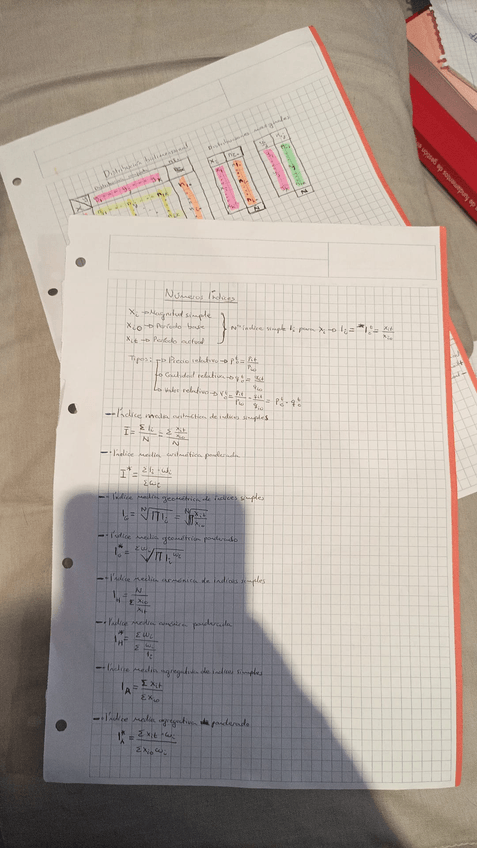 Distribuciones marginales
Números Índices
Xi → Magnitud simple
Xi0 → Período base
Xit → Período actual
Nº índice simple Ii para Xi → Ii = I₀ᵗ = Xit/Xi0
Tipos: → Precio relativo → P₀ᵗ = Pit/Pi0
→ Cantidad relativa → q₀ᵗ = qit/qi0
→ Valor relativo → V₀ᵗ = Pit/Pi0 · qit/qi0 = P₀ᵗ · q₀ᵗ
→ Índice media aritmética de índices simples
Ī = ΣIi/N = Σ Xit/Xi0 / N
→ Índice media aritmética ponderada
Ī* = ΣIi · ωi / Σωi
→ Índice media geométrica de índices simples
IG = ᴺ√∏ Ii = ᴺ√∏ Xit/Xi0
→ Índice media geométrica ponderada
IG* = Σωi√∏ Ii ωi
→ Índice media armónica de índices simples
IH = N / Σ Xi0/Xit
→ Índice media armónica ponderada
IH* = Σωi / Σ ωi/Ii
→ Índice media agregativa de índices simples
IA = Σ Xit / Σ Xi0
→ Índice media agregativa ponderada
IA* = Σ Xit · ωi / Σ Xi0 ωi